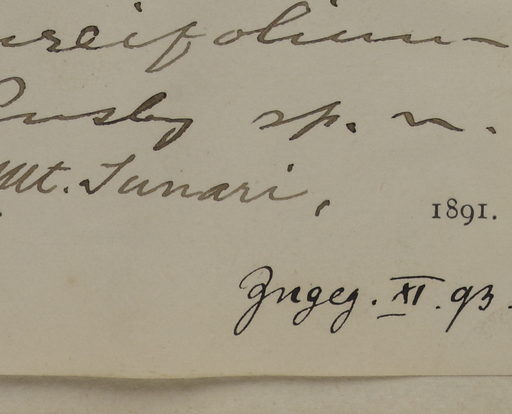 ureifolium
Rusby sp. n.
Mt. Tunari,
1891.
Zugeg. XI. 93.